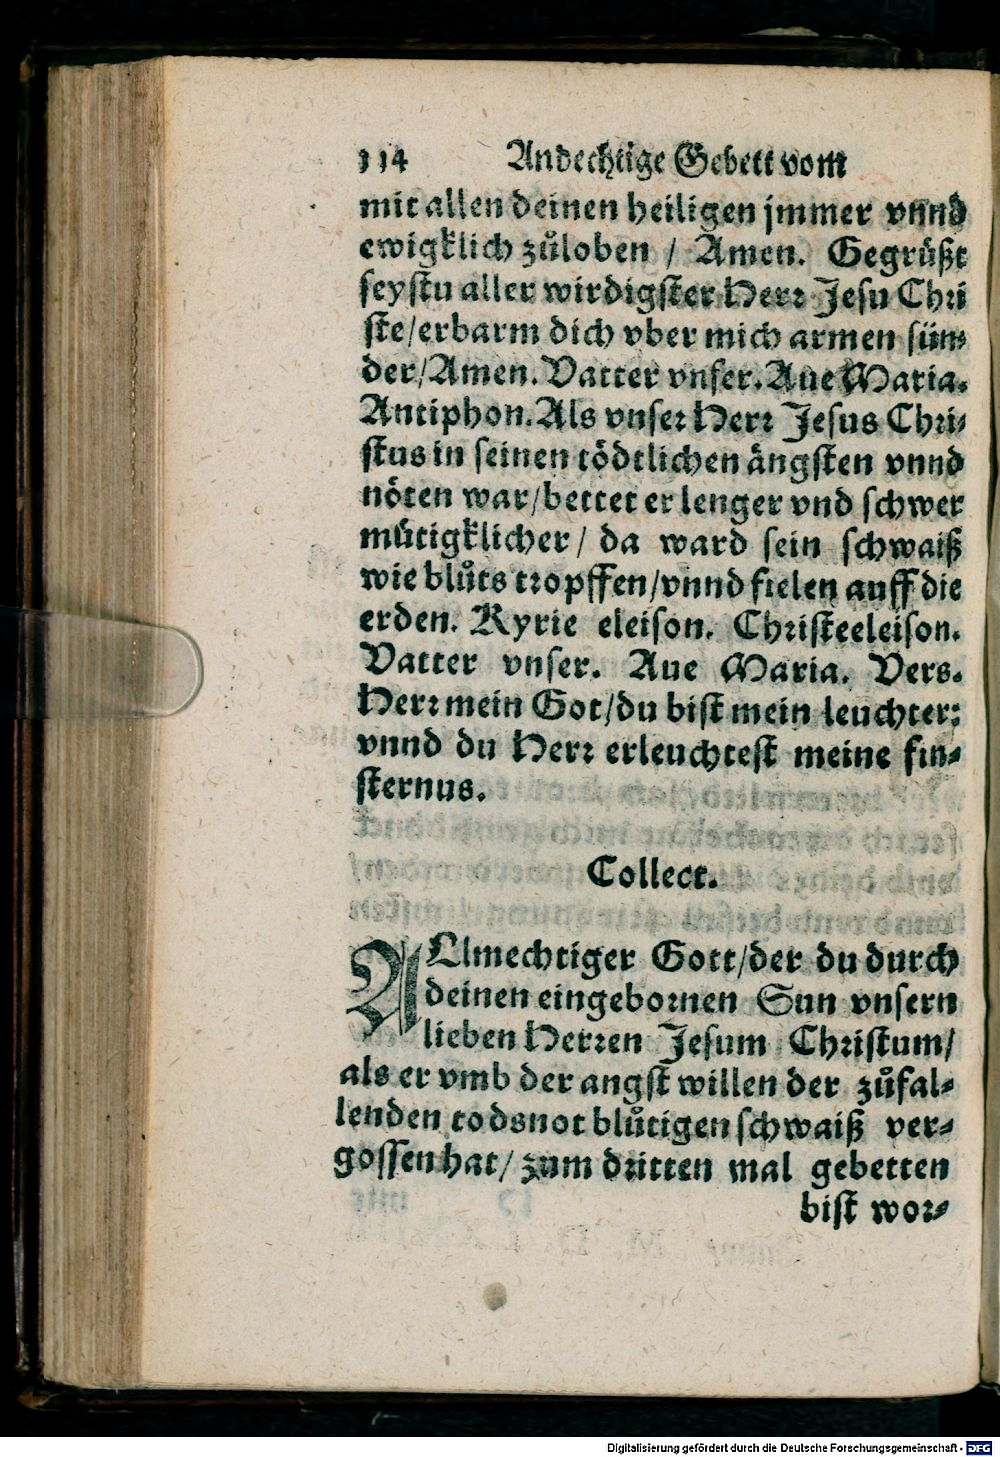 114 Andechtige Gebett vom
mit allen deinen heiligen jmmer vnnd
ewigklich zůloben / Amen. Gegrüßt
seystu aller wirdigster Herr Jesu Chri
ste/erbarm dich vber mich armen sün-
der/Amen. Vatter vnser. Aue Maria.
Antiphon. Als vnser Herr Jesus Chri-
stus in seinen tödtlichen ängsten vnnd
nöten war/bettet er lenger vnd schwer
mütigklicher/ da ward sein schwaiß
wie blůts tropffen/vnnd fielen auff die
erden. Kyrie eleison. Christeeleison.
Vatter vnser. Aue Maria. Vers.
Herr mein Got/du bist mein leuchter:
vnnd du Herr erleuchtest meine fin-
sternus.
Collect.
ALlmechtiger Gott/der du durch
deinen eingebornen Sun vnsern
lieben Herren Jesum Christum/
als er vmb der angst willen der zůfal-
lenden todsnot blůtigen schwaiß ver-
gossen hat/ zum dritten mal gebetten
bist wor-
Digitalisierung gefördert durch die Deutsche Forschungsgemeinschaft - DFG